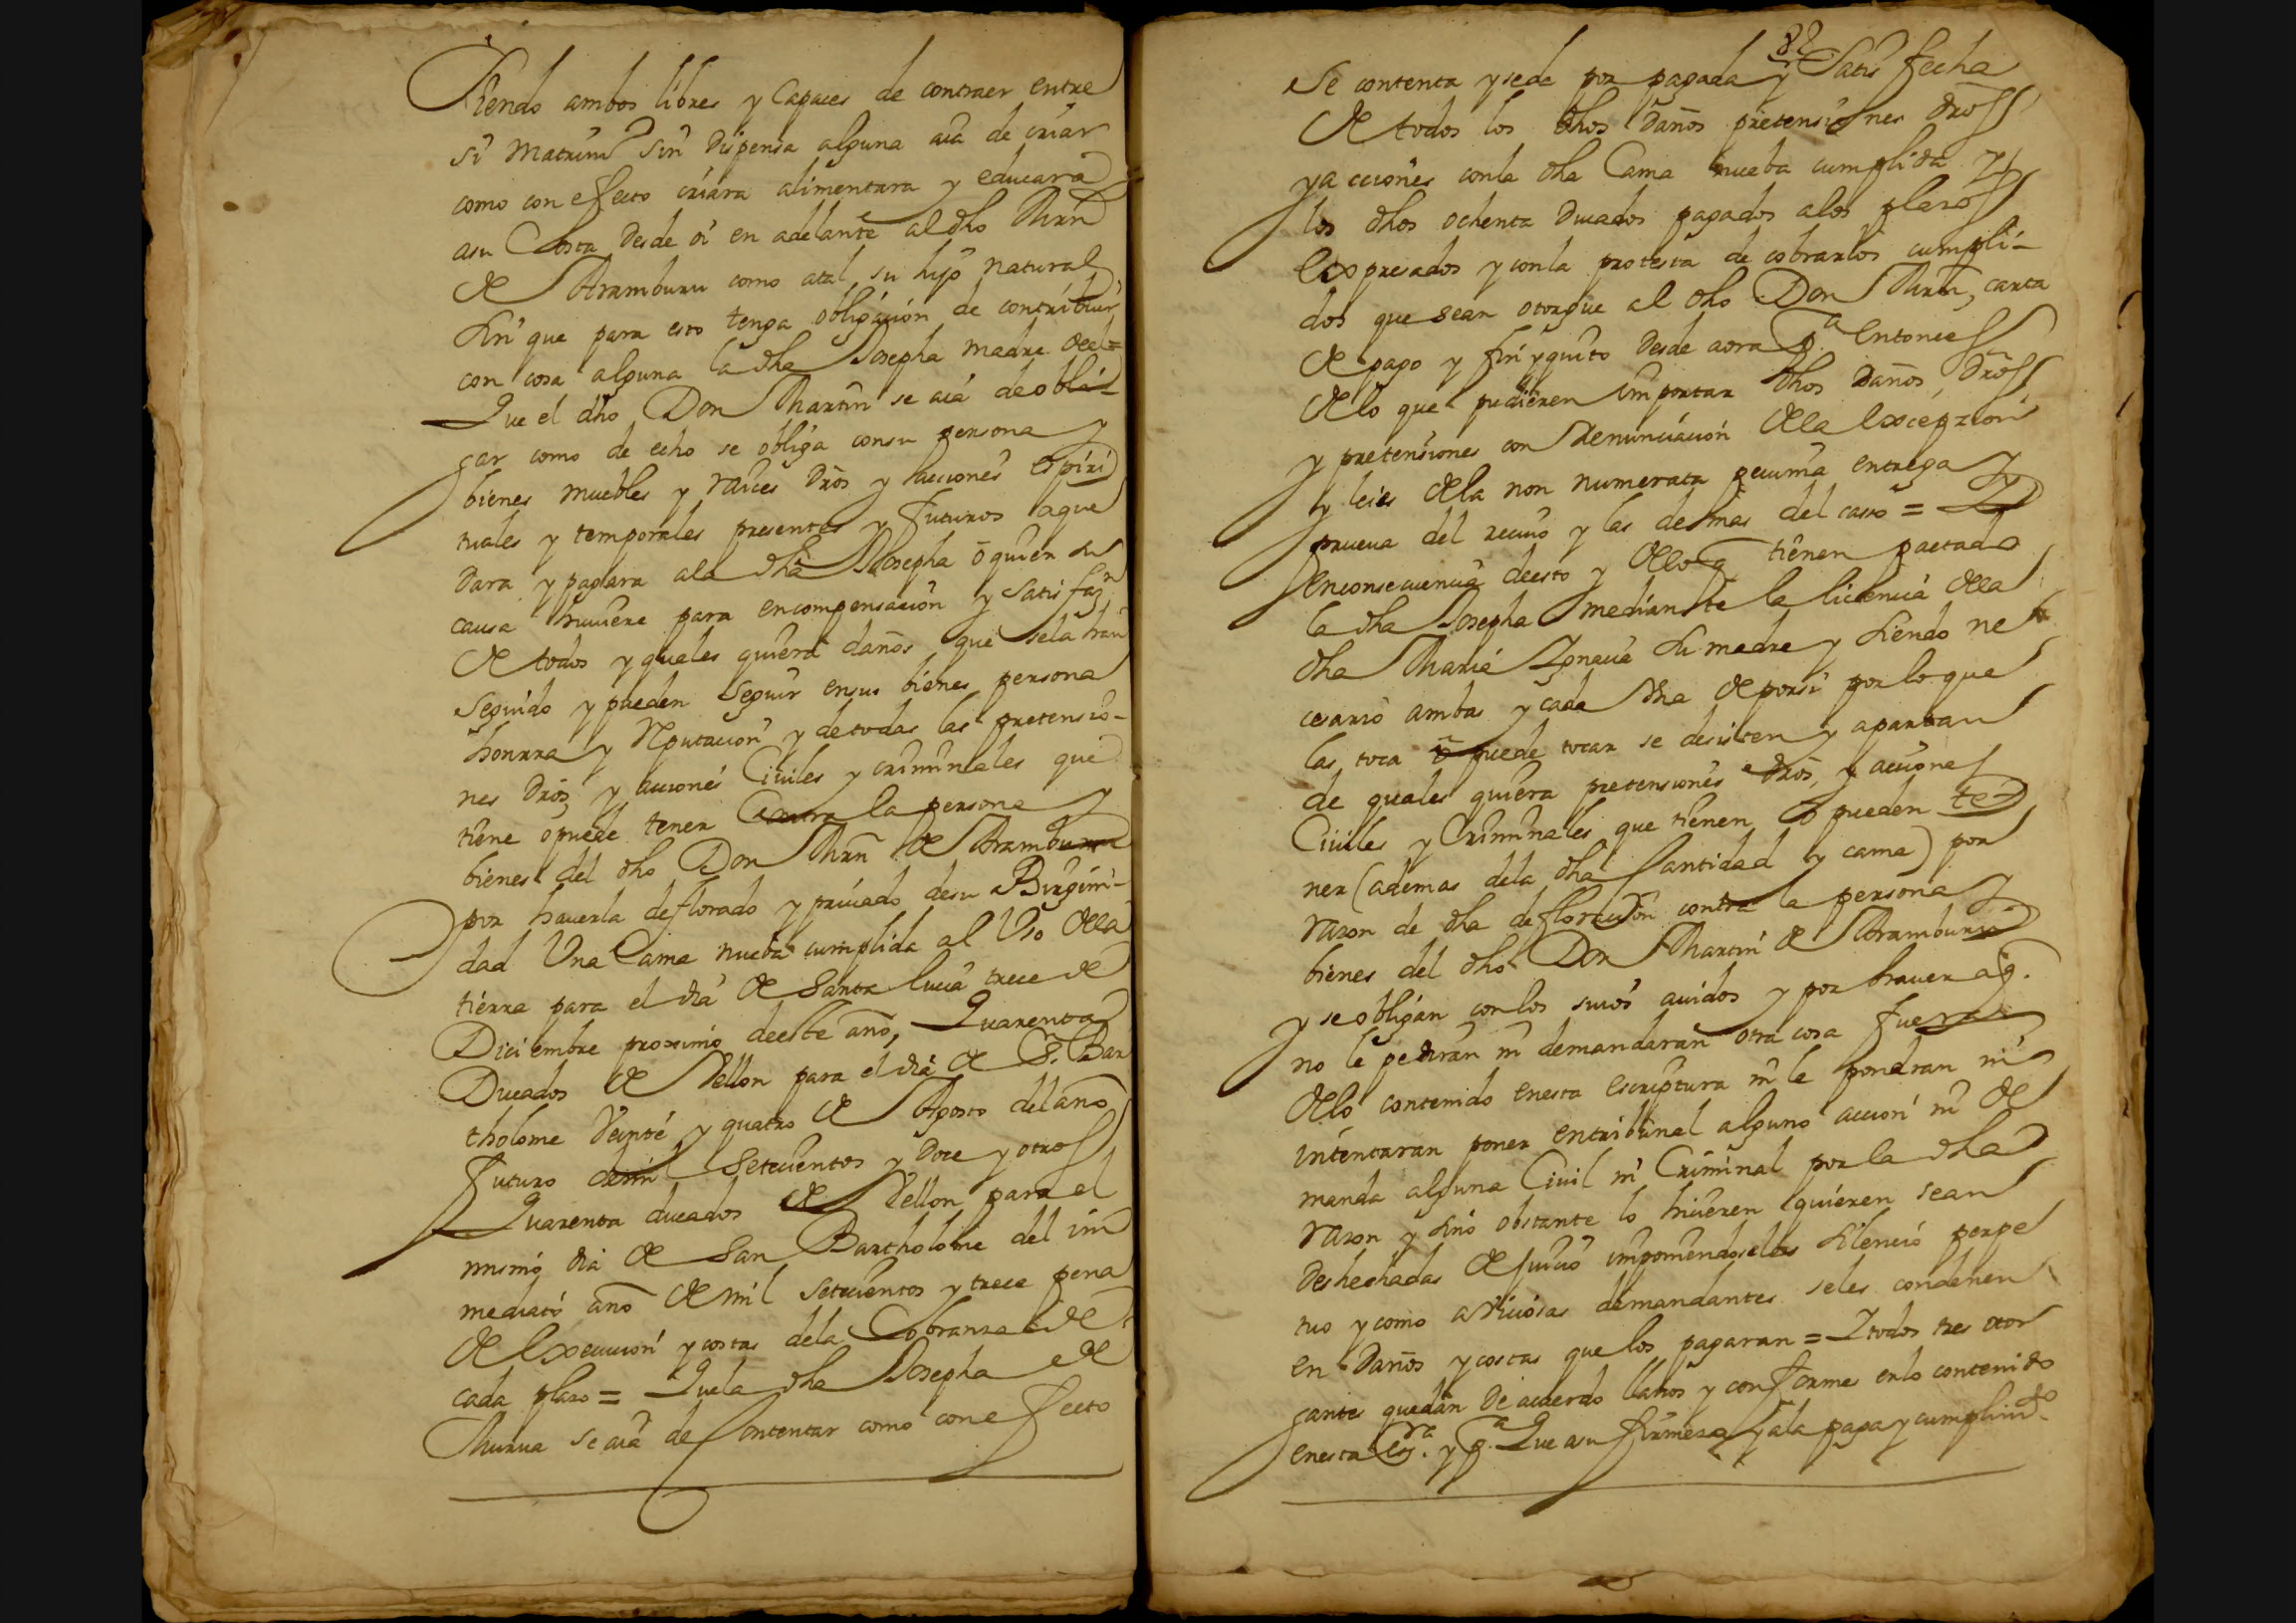 Siendo ambos libres y Capaces de contraer entre
si Matrimº sin dispensa alguna aia de criar
como con efecto criara alimentara y educara
asu Costa desde oi en adelante al dho Mrñ
de Aramburu como atal su hijo natural
sin que para esto tenga obligacion de contribuir
con cosa alguna la dha Josepha madre del =
Que el dho Don Martin se aia de obli-
gar como de echo se obliga consu persona y
bienes muebles y raices dros y hacciones espiri
tuales y temporales presentes y futuros aque
dara y pagara ala dha Josepha o quien su
causa huuiere para encompensacion y satisfazn
de todos y quales quiera daños que sela han
seguido y pueden seguir ensus bienes persona
honrra y Reputacion y detodas las pretensio-
nes dros y acciones Ciuiles y criminales que
tiene o puede tener Contra la persona y
bienes del dho Don Mrñ de Aramburu
por hauerla deflorado y priuado desu Birgini-
dad Una Cama nueba cumplida al Uso dela
tierra para el dia de Santa lucia trece de
Diciembre proximo deeste año, Quarenta
Ducados de Vellon para el dia de S. Bar
tholome Veinte y quatro de Agosto del año
futuro demil Setecientos y doce y otros
Quarenta ducados de Vellon para el
mismo dia de San Bartholome del in
mediato año de mil setecientos y trece pena
de Execucion y costas dela Cobranza de
cada plazo = Quela dha Josepha de
Murua se aia de Contentar como con efecto
82
Se contenta y sede por pagada y Satisfecha
de todos los dhos daños pretensiones dros
ya cciones conla dha Cama nueba cumplida y
los dhos ochenta Ducados pagados alos plazos
Expresados y conla protesta de cobrarlos cumpli-
dos que sean otorgue al dho Don Mrñ, carta
de pago y finiquito desde aora pa entonces
delo que pudieren importar dhos daños, dros
y pretensiones con Renunciacion dela Excepzion
y leies dela non numerata pecunia entrega y
prueua del reciuo y las demas del caso = Y
Enconsecuencia deesto y delo q tienen pactado
la dha Josepha mediante la licencia dela
dha Maria Ygnacia su madre y siendo ne
cesario ambas y cada Una deporsi por lo que
las toca o puede tocar se desisten y apartan
de quales quiera pretensiones dros, y acciones
Ciuiles y Criminales que tienen o pueden te-
ner (ademas dela dha Cantidad y cama) por
razon de dha defloracion contra la persona y
bienes del dho Don Martin de Aramburu
y se obligan conlos suios auidos y por hauer aq.
no le pediran ni demandaran otra cosa fuera
delo contenido enesta escriptura ni le pondran ni
intentaran poner entribunal alguno accion ni de
manda alguna Ciuil ni Criminal por la dha
razon y sino obstante lo hiuieren quieren sean
deshechadas de juicio imponiendoseles silencio perpe
tuo y como a viciosas demandantes seles condenen
en daños y costas que los pagaran = Y todos tres otor
gantes quedan de acuerdo llanos y conformes enlo contenido
enesta Essra. y pa. Que asu firmeza y ala paga y cumplimto